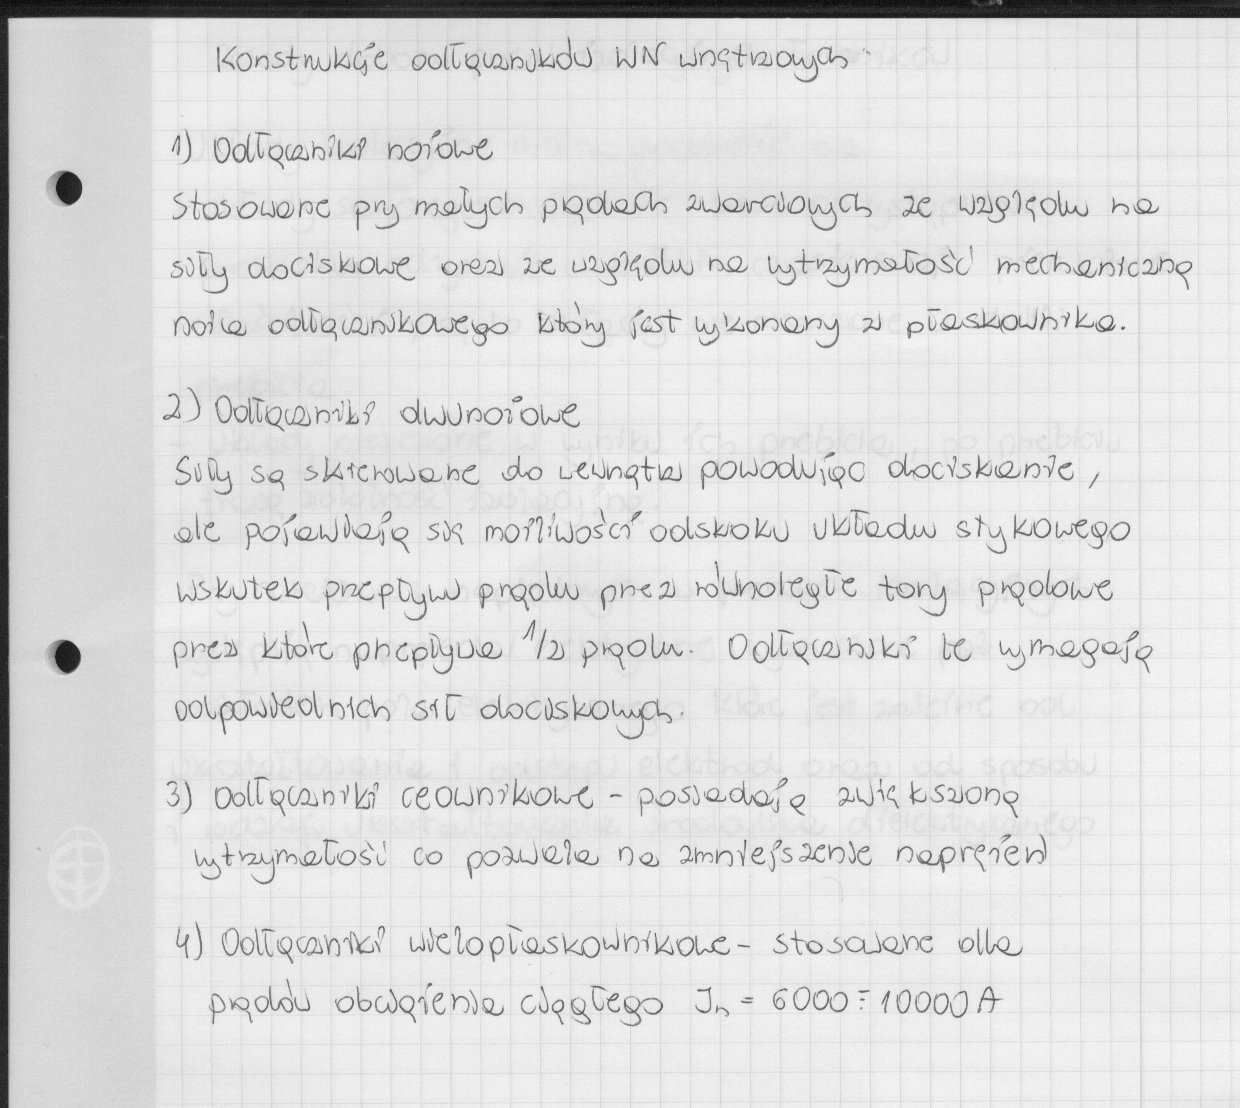 Konstrukcje odłączników WN wnętrzowych
1) Odłączniki nożowe
Stosowane pry małych prądach zwarciowych ze względu na
siły dociskowe oraz ze względu na wytrzymałość mechaniczną
noża odłącznikowego który jest wykonany z płaskownika.
2) Odłączniki dwunożowe
Siły są skierowane do wewnątrz powodując dociskanie,
ale pojawiają się możliwości odskoku układu stykowego
wskutek przepływu prądu przez równoległe tory prądowe
przez które przepływa 1/2 prądu. Odłączniki te wymagają
odpowiednich sił dociskowych.
3) Odłączniki ceownikowe - posiadają zwiększoną
wytrzymałość co pozwala na zmniejszenie naprężeń
4) Odłączniki wielopłaskownikowe - stosowane dla
prądów obciążenia ciągłego In = 6000 ÷ 10000 A